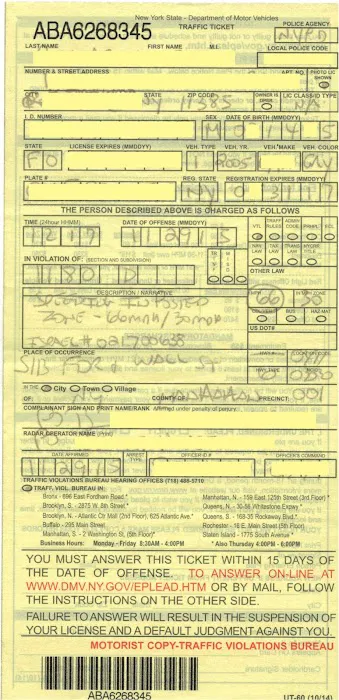 New York State - Department of Motor Vehicles
ABA6268345
TRAFFIC TICKET
POLICE AGENCY
NYPD
LAST NAME FIRST NAME M.I. LOCAL POLICE CODE
NUMBER & STREET ADDRESS APT. NO. PHOTO LIC SHOWN
CITY STATE ZIP CODE OWNER IS OPER. LIC CLASS/ID TYPE
NY 11385 N/A
I. D. NUMBER SEX DATE OF BIRTH (MMDDYY)
M
STATE LICENSE EXPIRES (MMDDYY) VEH. TYPE VEH. YR. VEH. MAKE VEH. COLOR
1 2005 GY
PLATE # REG. STATE REGISTRATION EXPIRES (MMDDYY)
NY
THE PERSON DESCRIBED ABOVE IS CHARGED AS FOLLOWS
TIME (24hour HH:MM) DATE OF OFFENSE (MMDDYY)
1217 112915
IN VIOLATION OF: (SECTION AND SUBDIVISION)
1180 D
OTHER LAW
DESCRIPTION / NARRATIVE
60 IN 30
ZONE - 60MPH / 30MPH
BUS HAZ MAT
US DOT#
PLACE OF OCCURRENCE
S/B FDR WALL ST
IN THE City Town Village
OF: NY COUNTY OF PRECINCT 001
COMPLAINANT SIGN AND PRINT NAME/RANK Affirmed under penalty of perjury
RADAR OPERATOR NAME (Print)
DATE AFFIRMED ARREST TYPE OFFICER ID # OFFICER'S COMMAND
112915
TRAFFIC VIOLATIONS BUREAU HEARING OFFICES (718) 488-5710
TRAFF. VIOL. BUREAU IN:
Bronx - 696 East Fordham Road *
Manhattan, N. - 159 East 125th Street (3rd Floor) *
Brooklyn, S. - 2875 W. 8th Street*
Queens, N. - 30-56 Whitestone Expwy *
Brooklyn, N. - Atlantic Ctr Mall (2nd Floor), 625 Atlantic Ave.*
Queens, S. - 168-35 Rockaway Blvd.*
Buffalo - 295 Main Street
Rochester - 16 E. Main Street (5th Floor)
Manhattan, S. - 2 Washington St. (8th Floor)*
Staten Island - 1775 South Avenue *
Business Hours: Monday - Friday 8:30AM - 4:00PM
* Also Thursday 4:00PM - 6:00PM
YOU MUST ANSWER THIS TICKET WITHIN 15 DAYS OF
THE DATE OF OFFENSE. TO ANSWER ON-LINE AT
WWW.DMV.NY.GOV/EPLEAD.HTM OR BY MAIL, FOLLOW
THE INSTRUCTIONS ON THE OTHER SIDE.
FAILURE TO ANSWER WILL RESULT IN THE SUSPENSION OF
YOUR LICENSE AND A DEFAULT JUDGMENT AGAINST YOU.
MOTORIST COPY-TRAFFIC VIOLATIONS BUREAU
ABA6268345
UT-60 (10/14)